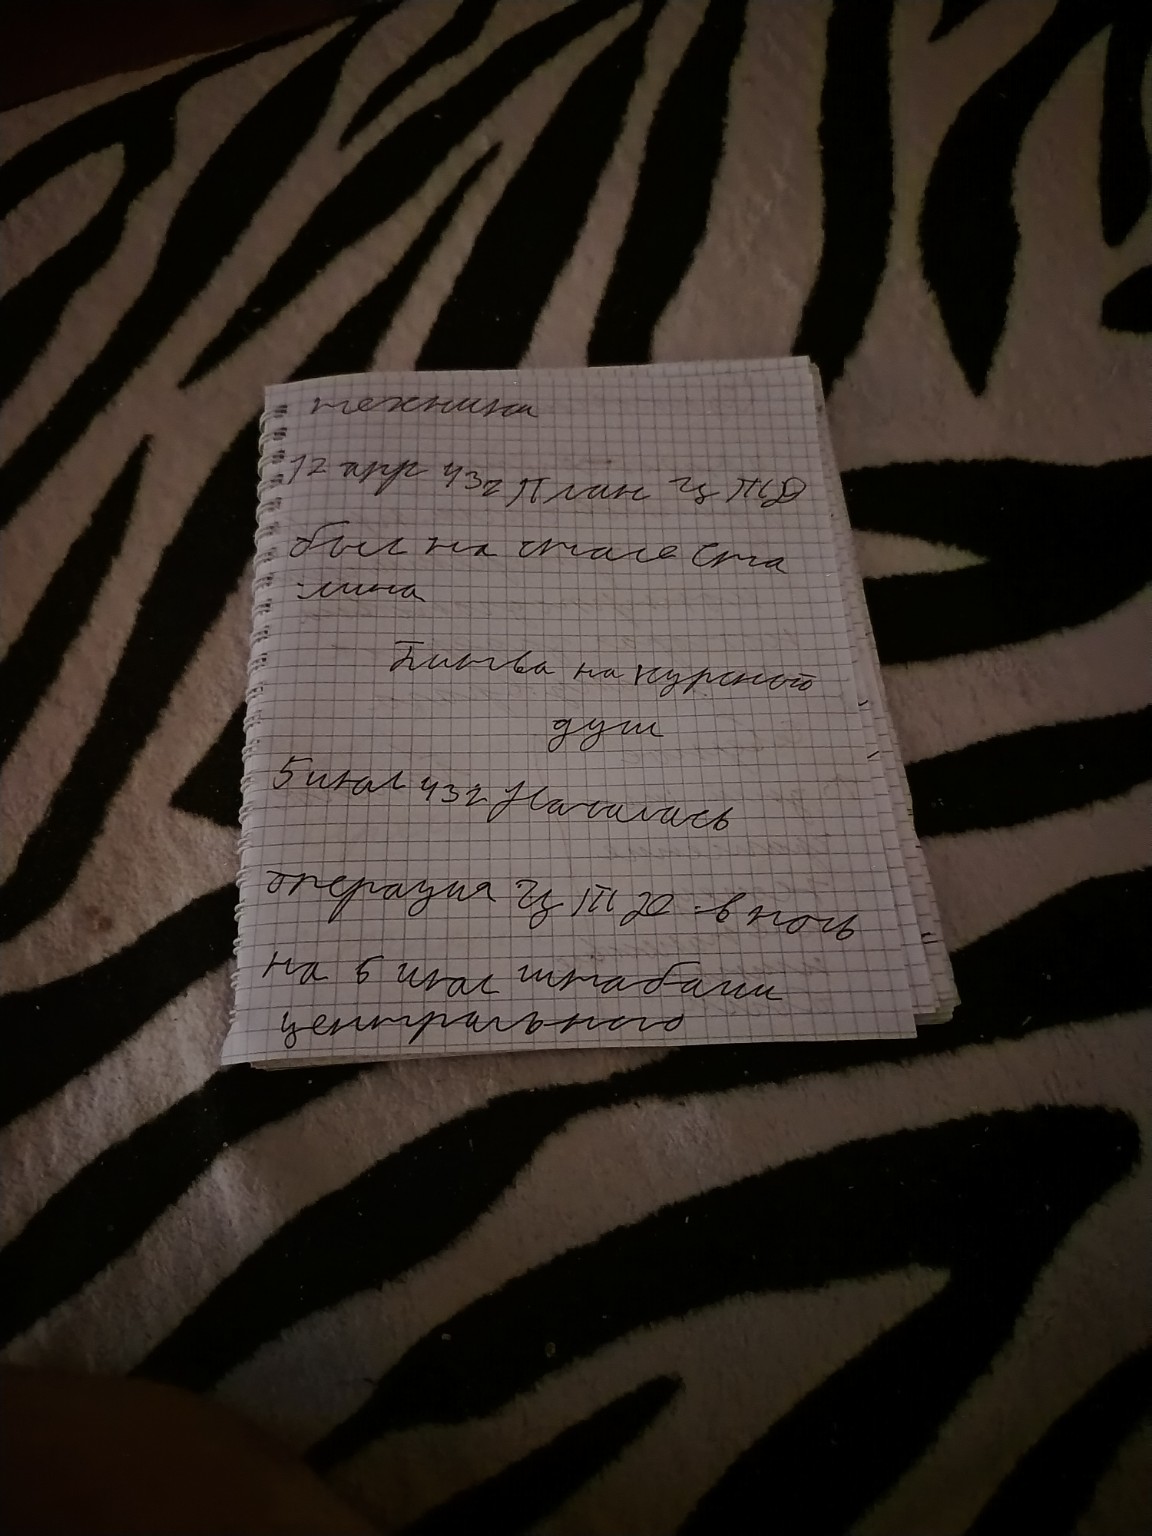 техника
12 апр 43г План Ц
был на столе Ста
лина
Битва на курской
дуги
5 июл 43г Началась
операция Ц в ночь
на 5 июл штабами
центрального